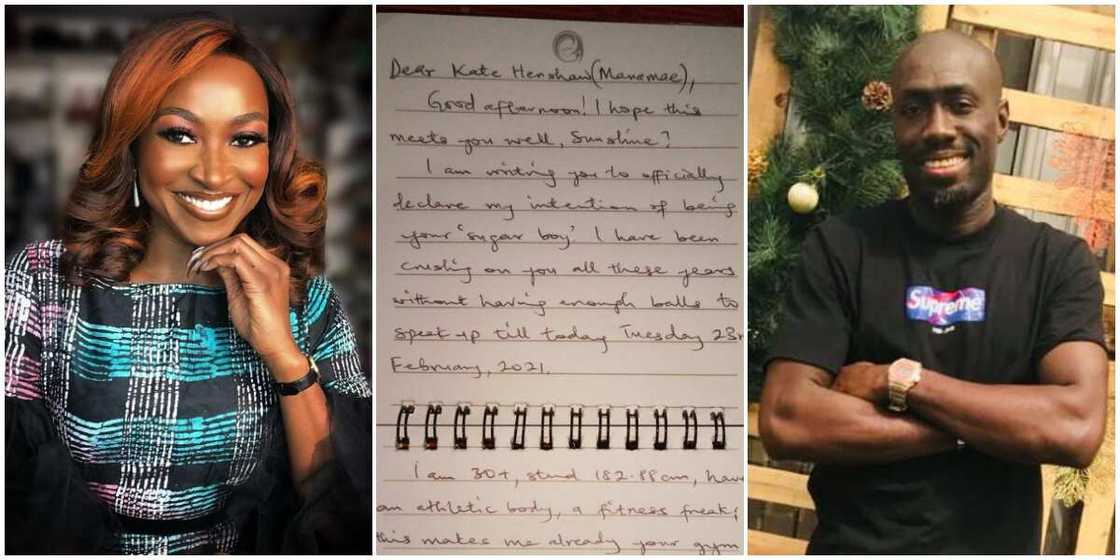 Dear Kate Henshaw (Manamae),
Good afternoon! I hope this
meets you well, Sunshine?
I am writing you to officially
declare my intention of being
your 'sugar boy'. I have been
crushing on you all these years
without having enough balls to
speak up till today Tuesday 23r
February, 2021.
I am 30+, stand 182.88cm, have
an athletic body, a fitness freak;
this makes me already your gym
Supreme